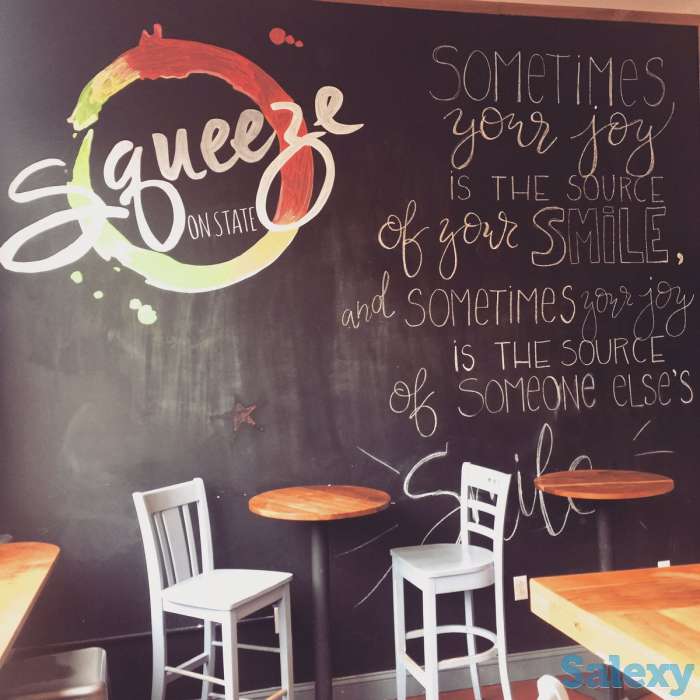 Squeeze
ON STATE
SOMETIMES
your joy
IS THE SOURCE
of your SMILE,
and SOMETIMES your joy
IS THE SOURCE
of SOMEONE ELSE'S
Smile
Salexy